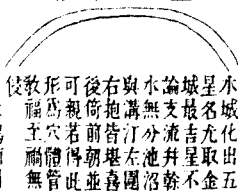 水城化出五
星名尤取金
城最吉星不
論支流并幹
水無分池沼
與溝汀左圍
右抱皆堪喜
後倚前朝並
可親若得此
形爲穴體管
教福主禍無
侵